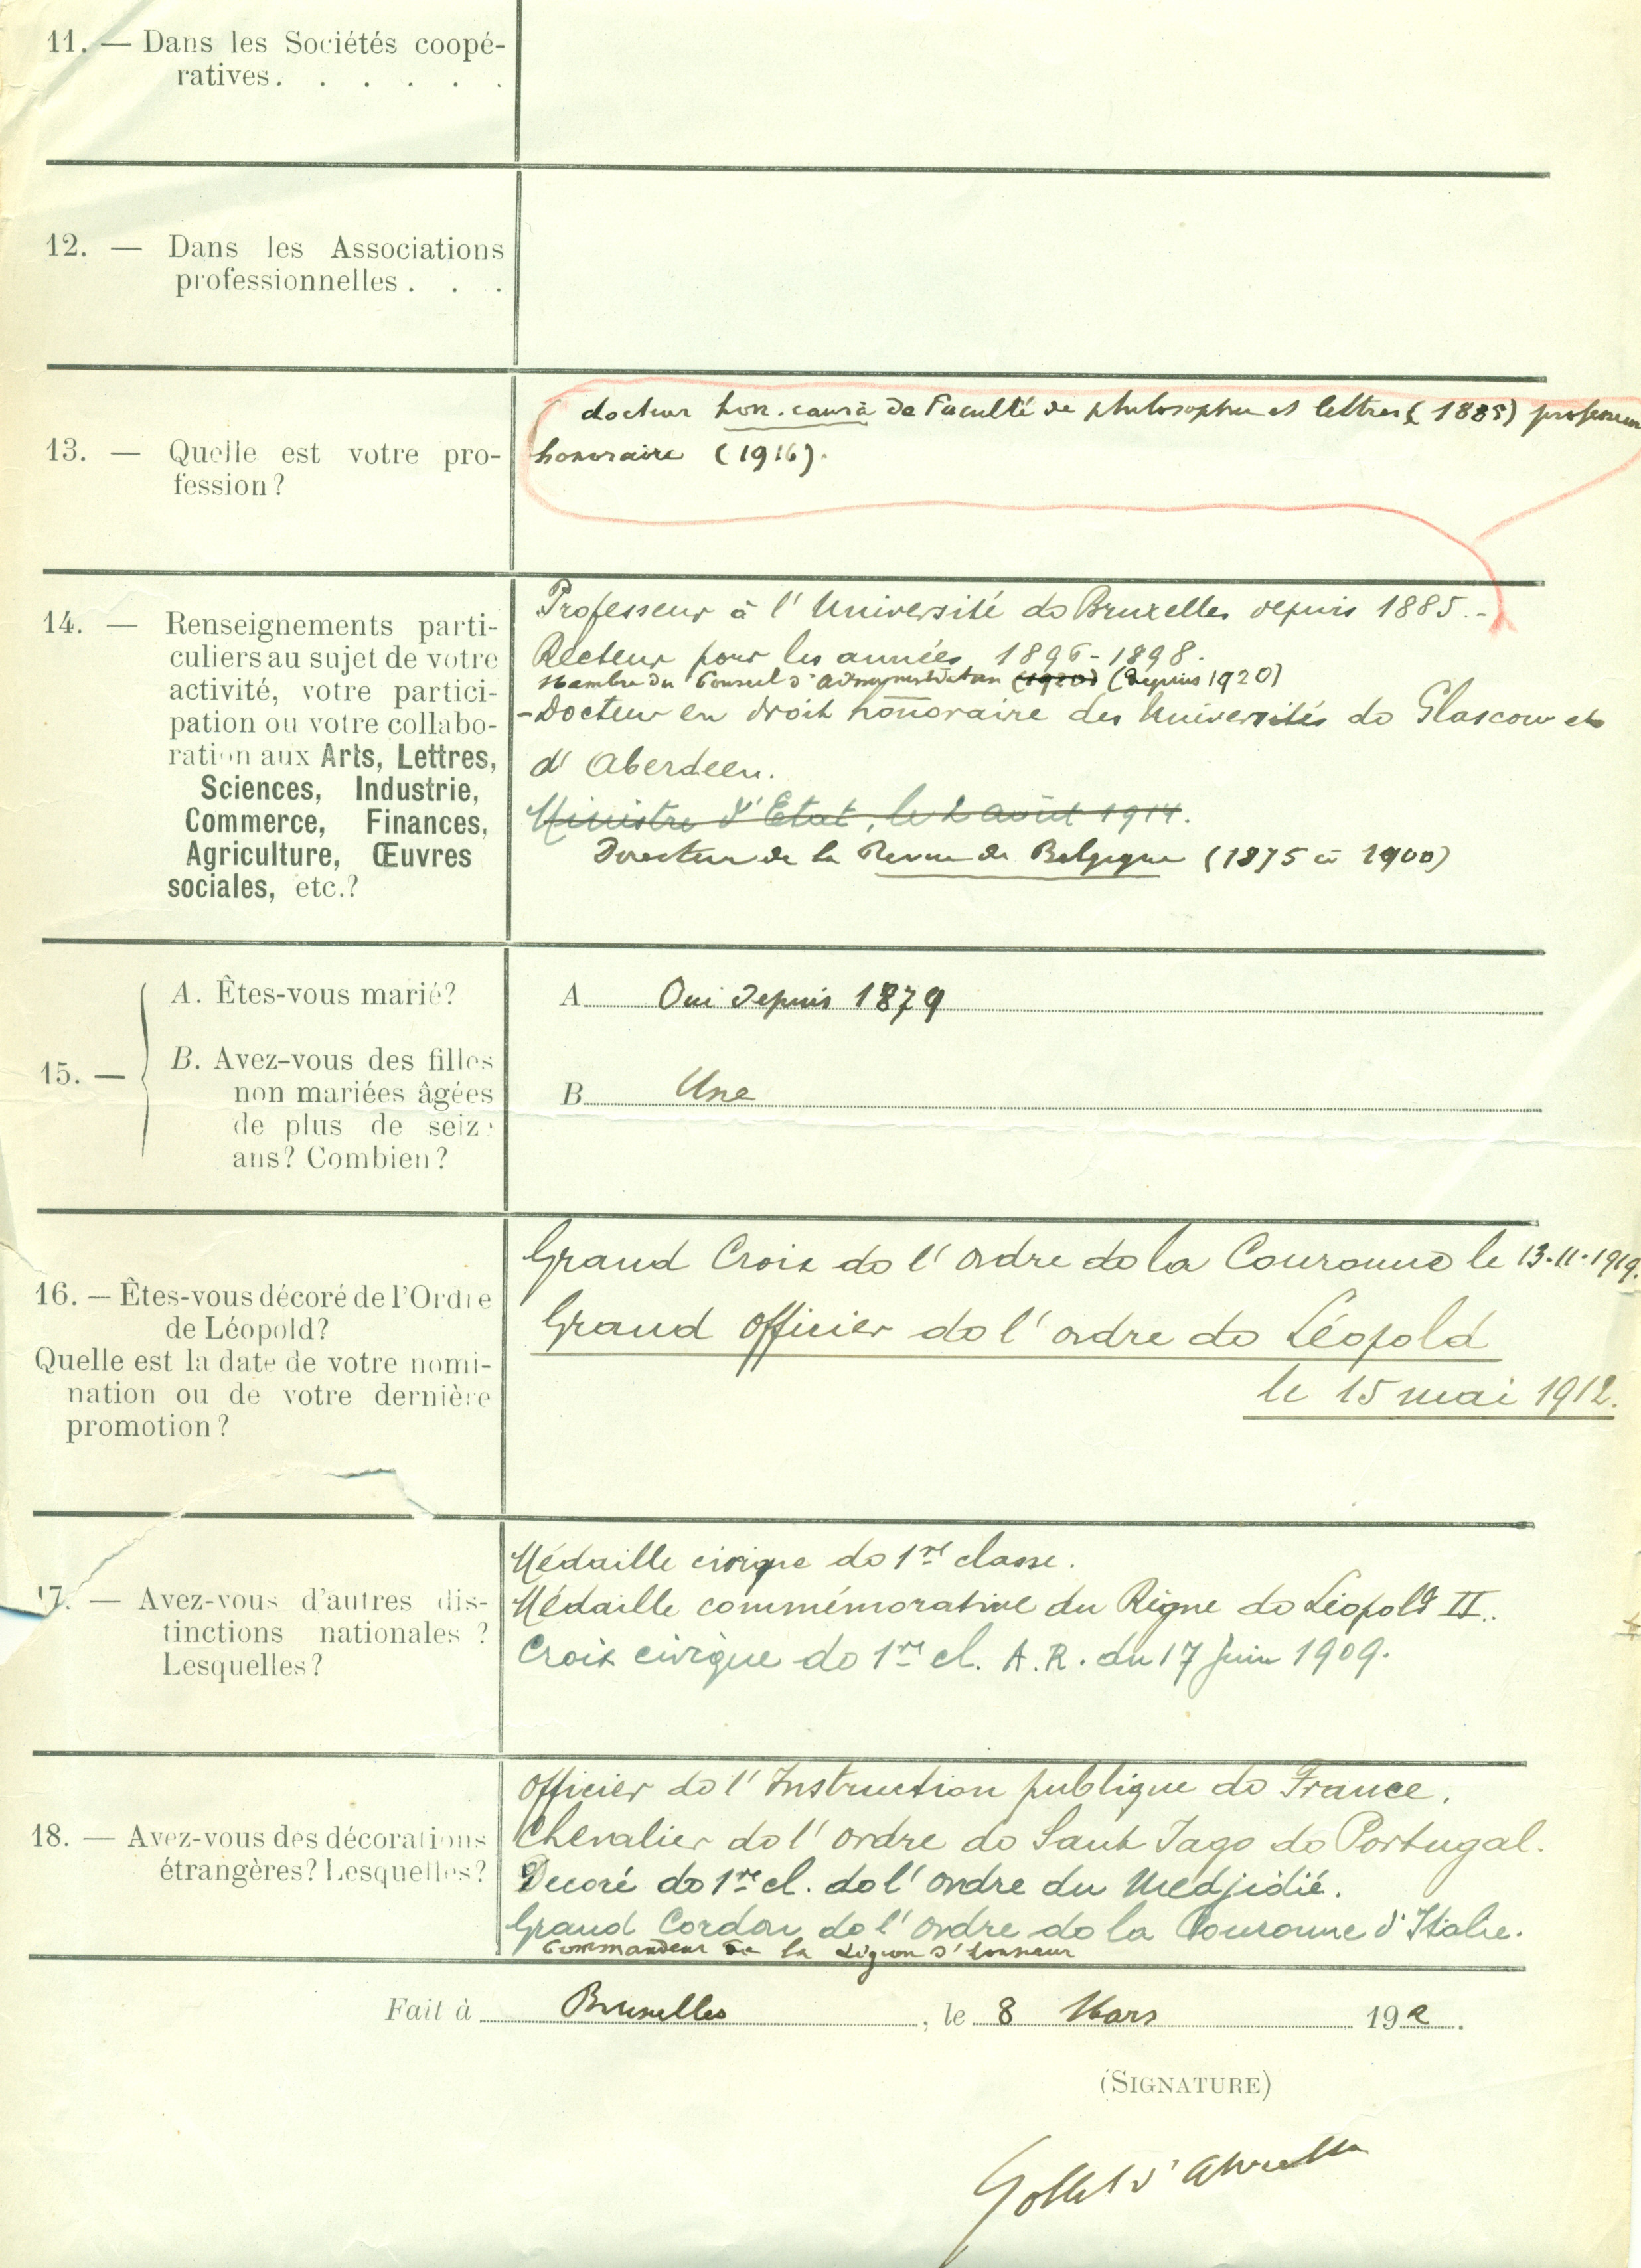 11. — Dans les Sociétés coopé-
ratives. . . . . .
12. — Dans les Associations
professionnelles . . .
13. — Quelle est votre pro-
fession?
docteur hon. causa de Faculté de philosophie et lettres (1885) professeur
honoraire (1916).
14. — Renseignements parti-
culiers au sujet de votre
activité, votre partici-
pation ou votre collabo-
ration aux Arts, Lettres,
Sciences, Industrie,
Commerce, Finances,
Agriculture, Œuvres
sociales, etc.?
Professeur à l'Université de Bruxelles depuis 1885. -
Recteur pour les années 1896-1898.
Membre du Conseil d'administration (1920) (depuis 1920)
- Docteur en droit honoraire des Universités de Glascow et
d'Aberdeen.
Ministre d'Etat, le 2 août 1914.
Directeur de la Revue de Belgique (1875 à 1900)
15. —
A. Êtes-vous marié?
A. Oui depuis 1879
B. Avez-vous des filles
non mariées âgées
de plus de seize
ans? Combien?
B. Une
16. — Êtes-vous décoré de l'Ordre
de Léopold?
Quelle est la date de votre nomi-
nation ou de votre dernière
promotion?
Grand Croix de l'ordre de la Couronne le 13-11-1919.
Grand officier de l'ordre de Léopold
le 15 mai 1912.
17. — Avez-vous d'autres dis-
tinctions nationales ?
Lesquelles?
Médaille civique de 1re classe.
Médaille commémorative du Règne de Léopold II.
Croix civique de 1re cl. A.R. du 17 juin 1909.
18. — Avez-vous des décorations
étrangères? Lesquelles?
Officier de l'Instruction publique de France.
Chevalier de l'ordre de Sant Iago de Portugal.
Decoré de 1re cl. de l'ordre du Medjidié.
Grand Cordon de l'ordre de la Couronne d'Italie.
Commandeur de la Légion d'honneur
Fait à Bruxelles, le 8 Mars 192 .
(SIGNATURE)
Goblet d'Alviella